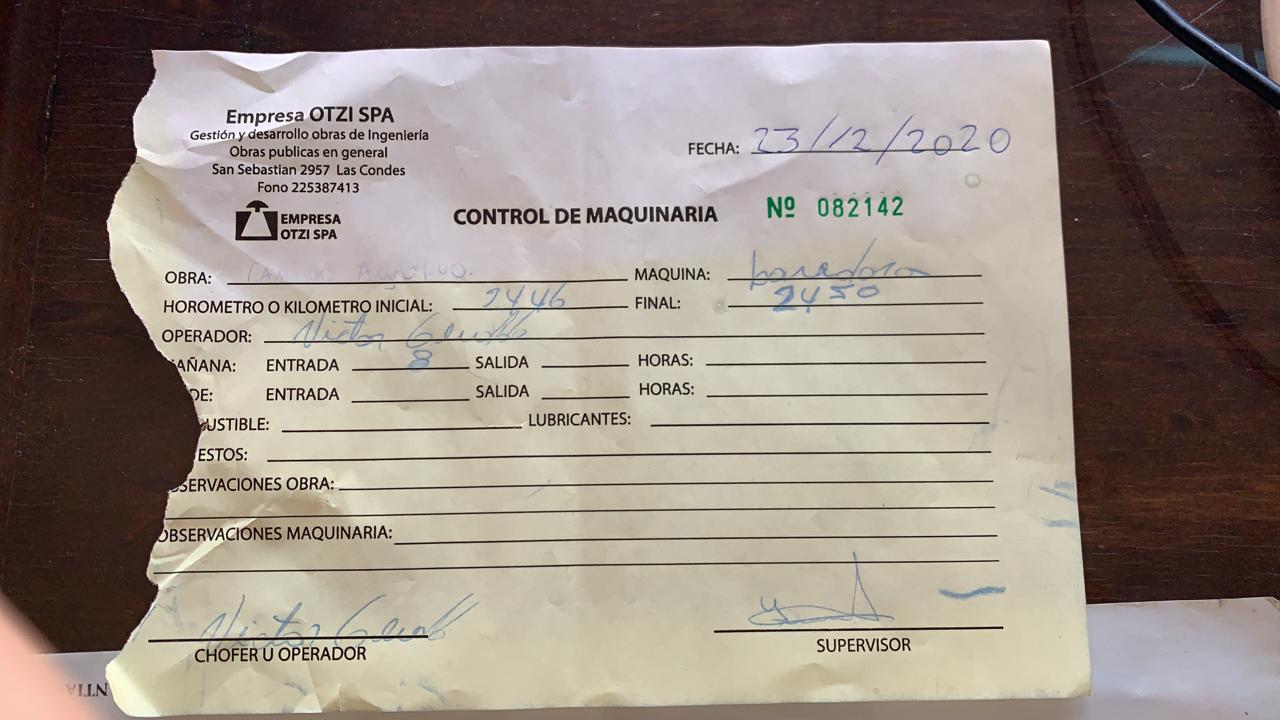 Empresa OTZI SPA
Gestión y desarrollo obras de Ingeniería
Obras publicas en general
San Sebastian 2957 Las Condes
Fono 225387413
EMPRESA
OTZI SPA
FECHA: 23/12/2020
CONTROL DE MAQUINARIA Nº 082142
OBRA: MAQUINA:
HOROMETRO O KILOMETRO INICIAL: 2446 FINAL: 2450
OPERADOR: Victor
AÑANA: ENTRADA 8 SALIDA HORAS:
DE: ENTRADA SALIDA HORAS:
USTIBLE: LUBRICANTES:
ESTOS:
SERVACIONES OBRA:
OBSERVACIONES MAQUINARIA:
Victor
CHOFER U OPERADOR
SUPERVISOR